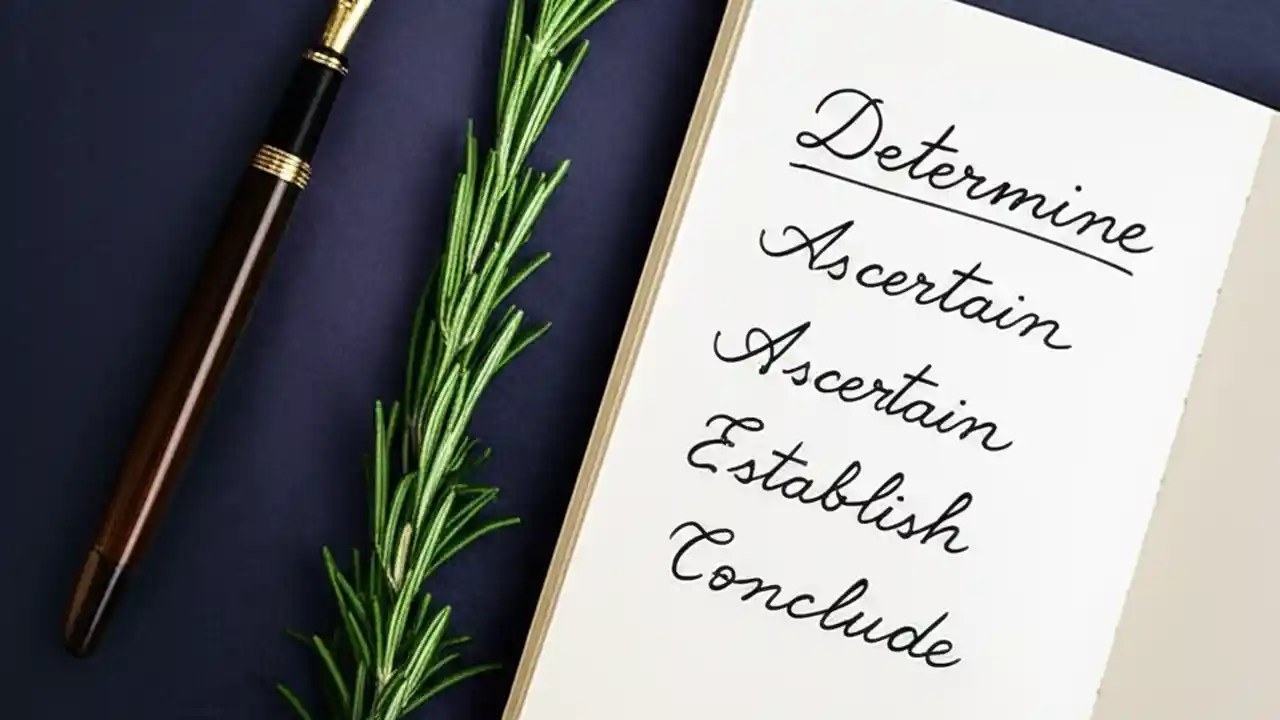 Determine
Ascertain
Ascertain
Establish
Conclude